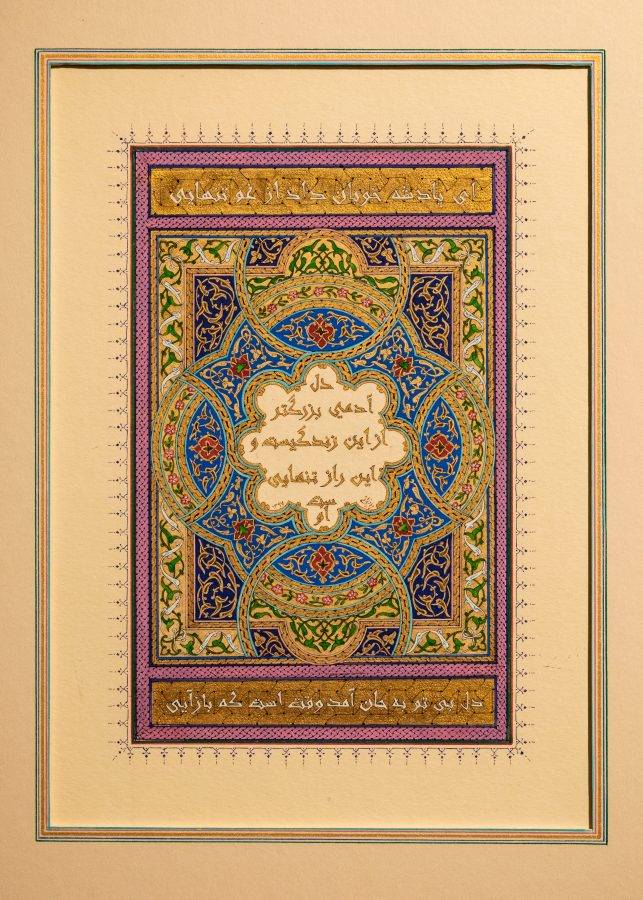 ای پادشه خوبان داد از غم تنهایی
دل
آدمی بزرگتر
از این زندگیست و
این راز تنهایی
ست
او
دل بی تو به جان آمد وقت است که بازآیی